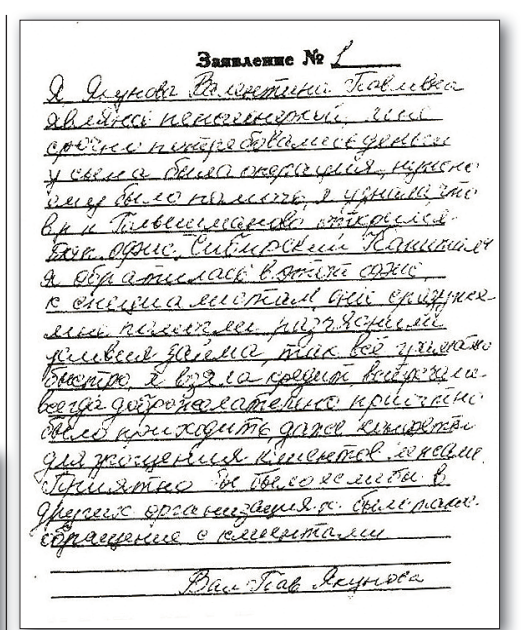 Заявление № 1
Я Якунова Валентина Павловна
являюсь пенсионеркой, мне
срочно потребовались деньги
у сына была операция, нужно
ему было помочь, я узнала что
в р.п Голышманово открылся
офис "Сибирский Капитал"
я обратилась в этот офис
к специалистам, они сразу же
мне помогли, разъяснили
условия займа, так всё грамотно
быстро, я взяла кредит, встречали
всегда доброжелательно приятно
было приходить даже конфеты
для угощения клиентов лежали.
Приятно бы было если бы в
других организациях было такое
обращение с клиентами
Вал Пав Якунова